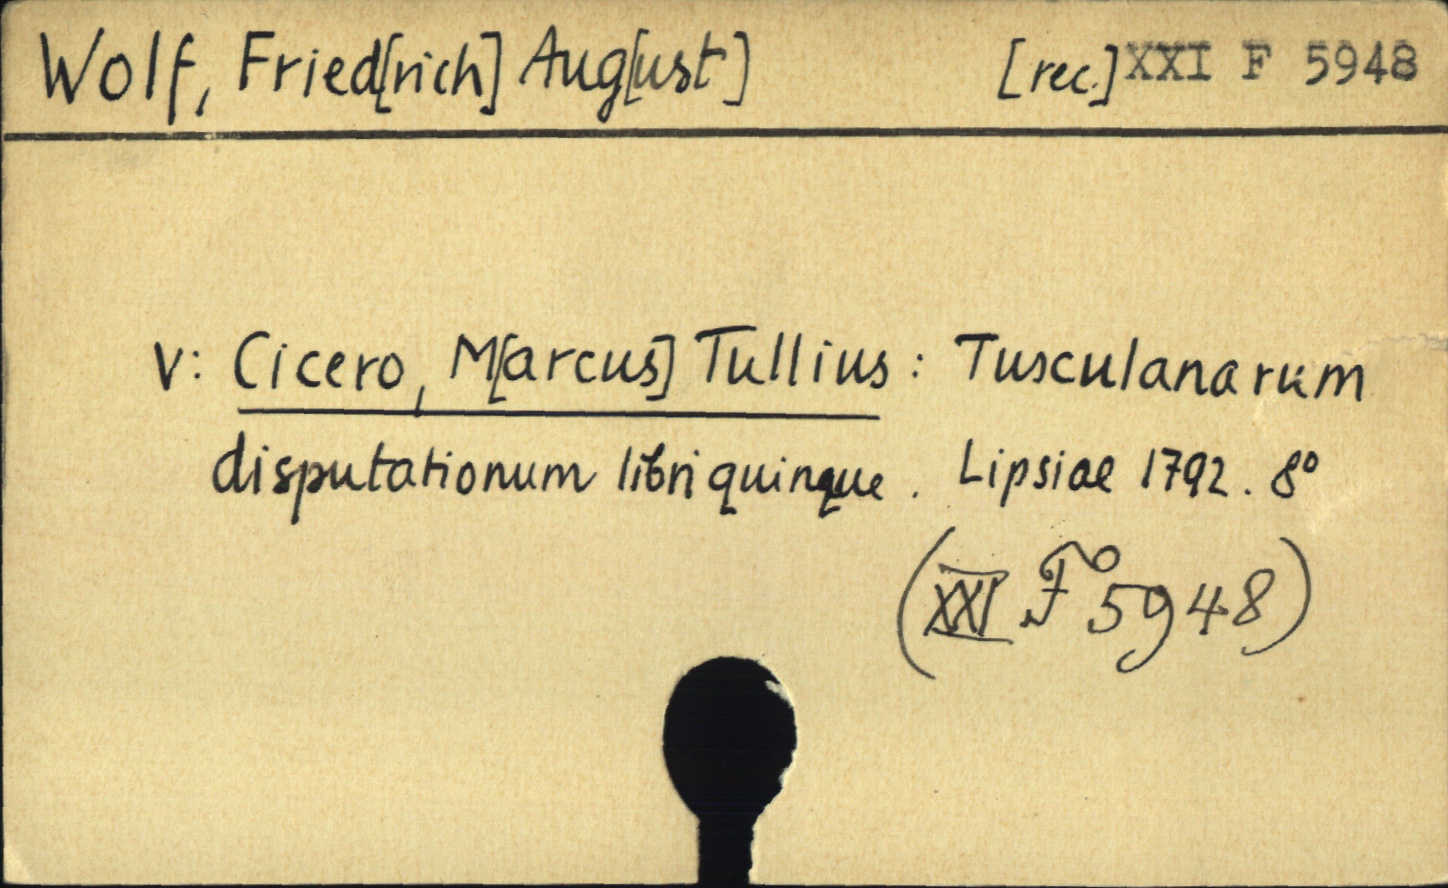 Wolf, Fried[rich] Aug[ust] [rec.] XXI F 5948
V: Cicero, M[arcus] Tullius: Tusculanarum
disputationum libri quinque. Lipsiae 1792. 8°
(XXI F 5948)